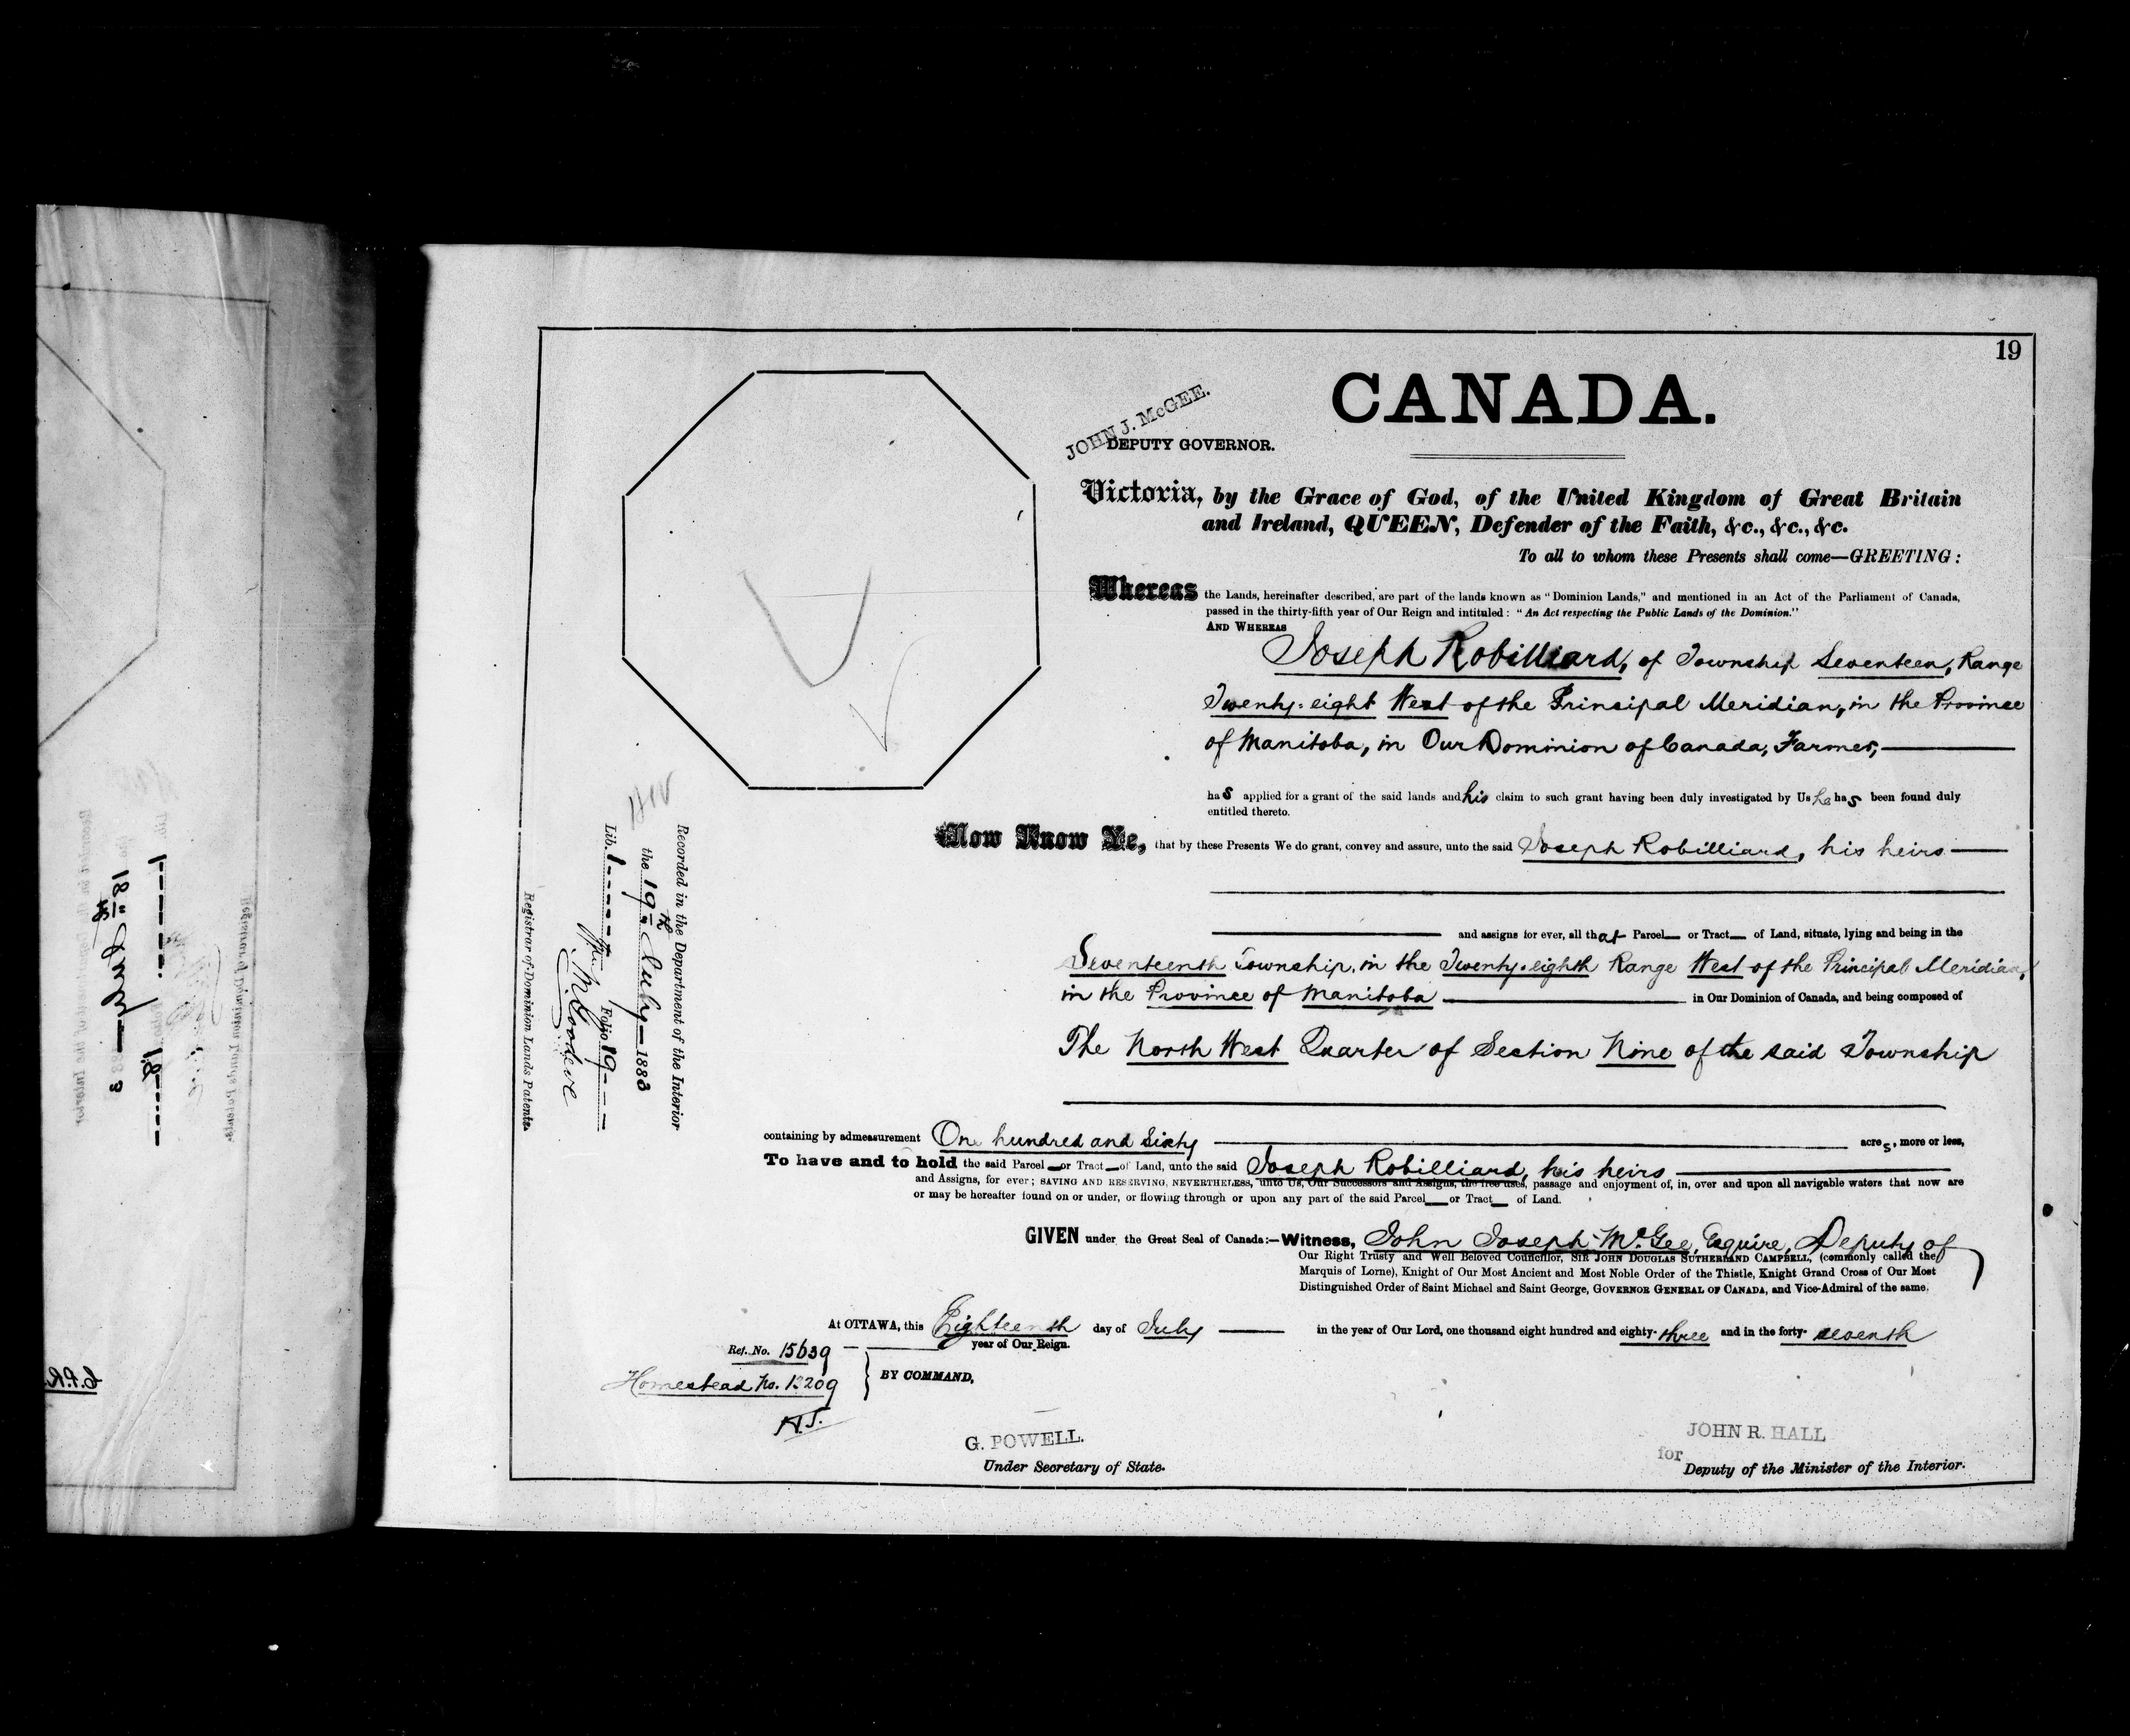 19
CANADA.
JOHN J. McGEE.
DEPUTY GOVERNOR.
Victoria, by the Grace of God, of the United Kingdom of Great Britain
and Ireland, QUEEN, Defender of the Faith, &c., &c., &c.
To all to whom these Presents shall come—GREETING:
Whereas the Lands, hereinafter described, are part of the lands known as "Dominion Lands," and mentioned in an Act of the Parliament of Canada,
passed in the thirty-fifth year of Our Reign and intituled: "An Act respecting the Public Lands of the Dominion."
AND WHEREAS
Joseph Robilliard, of Township Seventeen, Range
Twenty-eight West of the Principal Meridian, in the Province
of Manitoba, in Our Dominion of Canada, Farmer,
has applied for a grant of the said lands and his claim to such grant having been duly investigated by Us he has been found duly
entitled thereto.
Now Know Ye, that by these Presents We do grant, convey and assure, unto the said Joseph Robilliard, his heirs
and assigns for ever, all that Parcel or Tract of Land, situate, lying and being in the
Seventeenth Township, in the Twenty-eighth Range West of the Principal Meridian,
in the Province of Manitoba in Our Dominion of Canada, and being composed of
The North West Quarter of Section Nine of the said Township
containing by admeasurement One hundred and Sixty acres, more or less,
To have and to hold the said Parcel or Tract of Land, unto the said Joseph Robilliard, his heirs
and Assigns, for ever; SAVING AND RESERVING, NEVERTHELESS, unto Us, Our Successors and Assigns, the free uses, passage and enjoyment of, in, over and upon all navigable waters that now are
or may be hereafter found on or under, or flowing through or upon any part of the said Parcel or Tract of Land.
GIVEN under the Great Seal of Canada:—Witness, John Joseph McGee, Esquire, Deputy of
Our Right Trusty and Well Beloved Councillor, SIR JOHN DOUGLAS SUTHERLAND CAMPBELL, (commonly called the
Marquis of Lorne), Knight of Our Most Ancient and Most Noble Order of the Thistle, Knight Grand Cross of Our Most
Distinguished Order of Saint Michael and Saint George, GOVERNOR GENERAL OF CANADA, and Vice-Admiral of the same.
At OTTAWA, this Eighteenth day of July in the year of Our Lord, one thousand eight hundred and eighty-three and in the forty-seventh
year of Our Reign.
Ref. No. 15639
Homestead No. 13209
H.J.
BY COMMAND,
G. POWELL.
Under Secretary of State.
JOHN R. HALL
for
Deputy of the Minister of the Interior.
Recorded in the Department of the Interior
the 19th July 1883
Lib. 1 Folio 19
Wm. M. Goodeve
Registrar of Dominion Lands Patents.
18 July
18